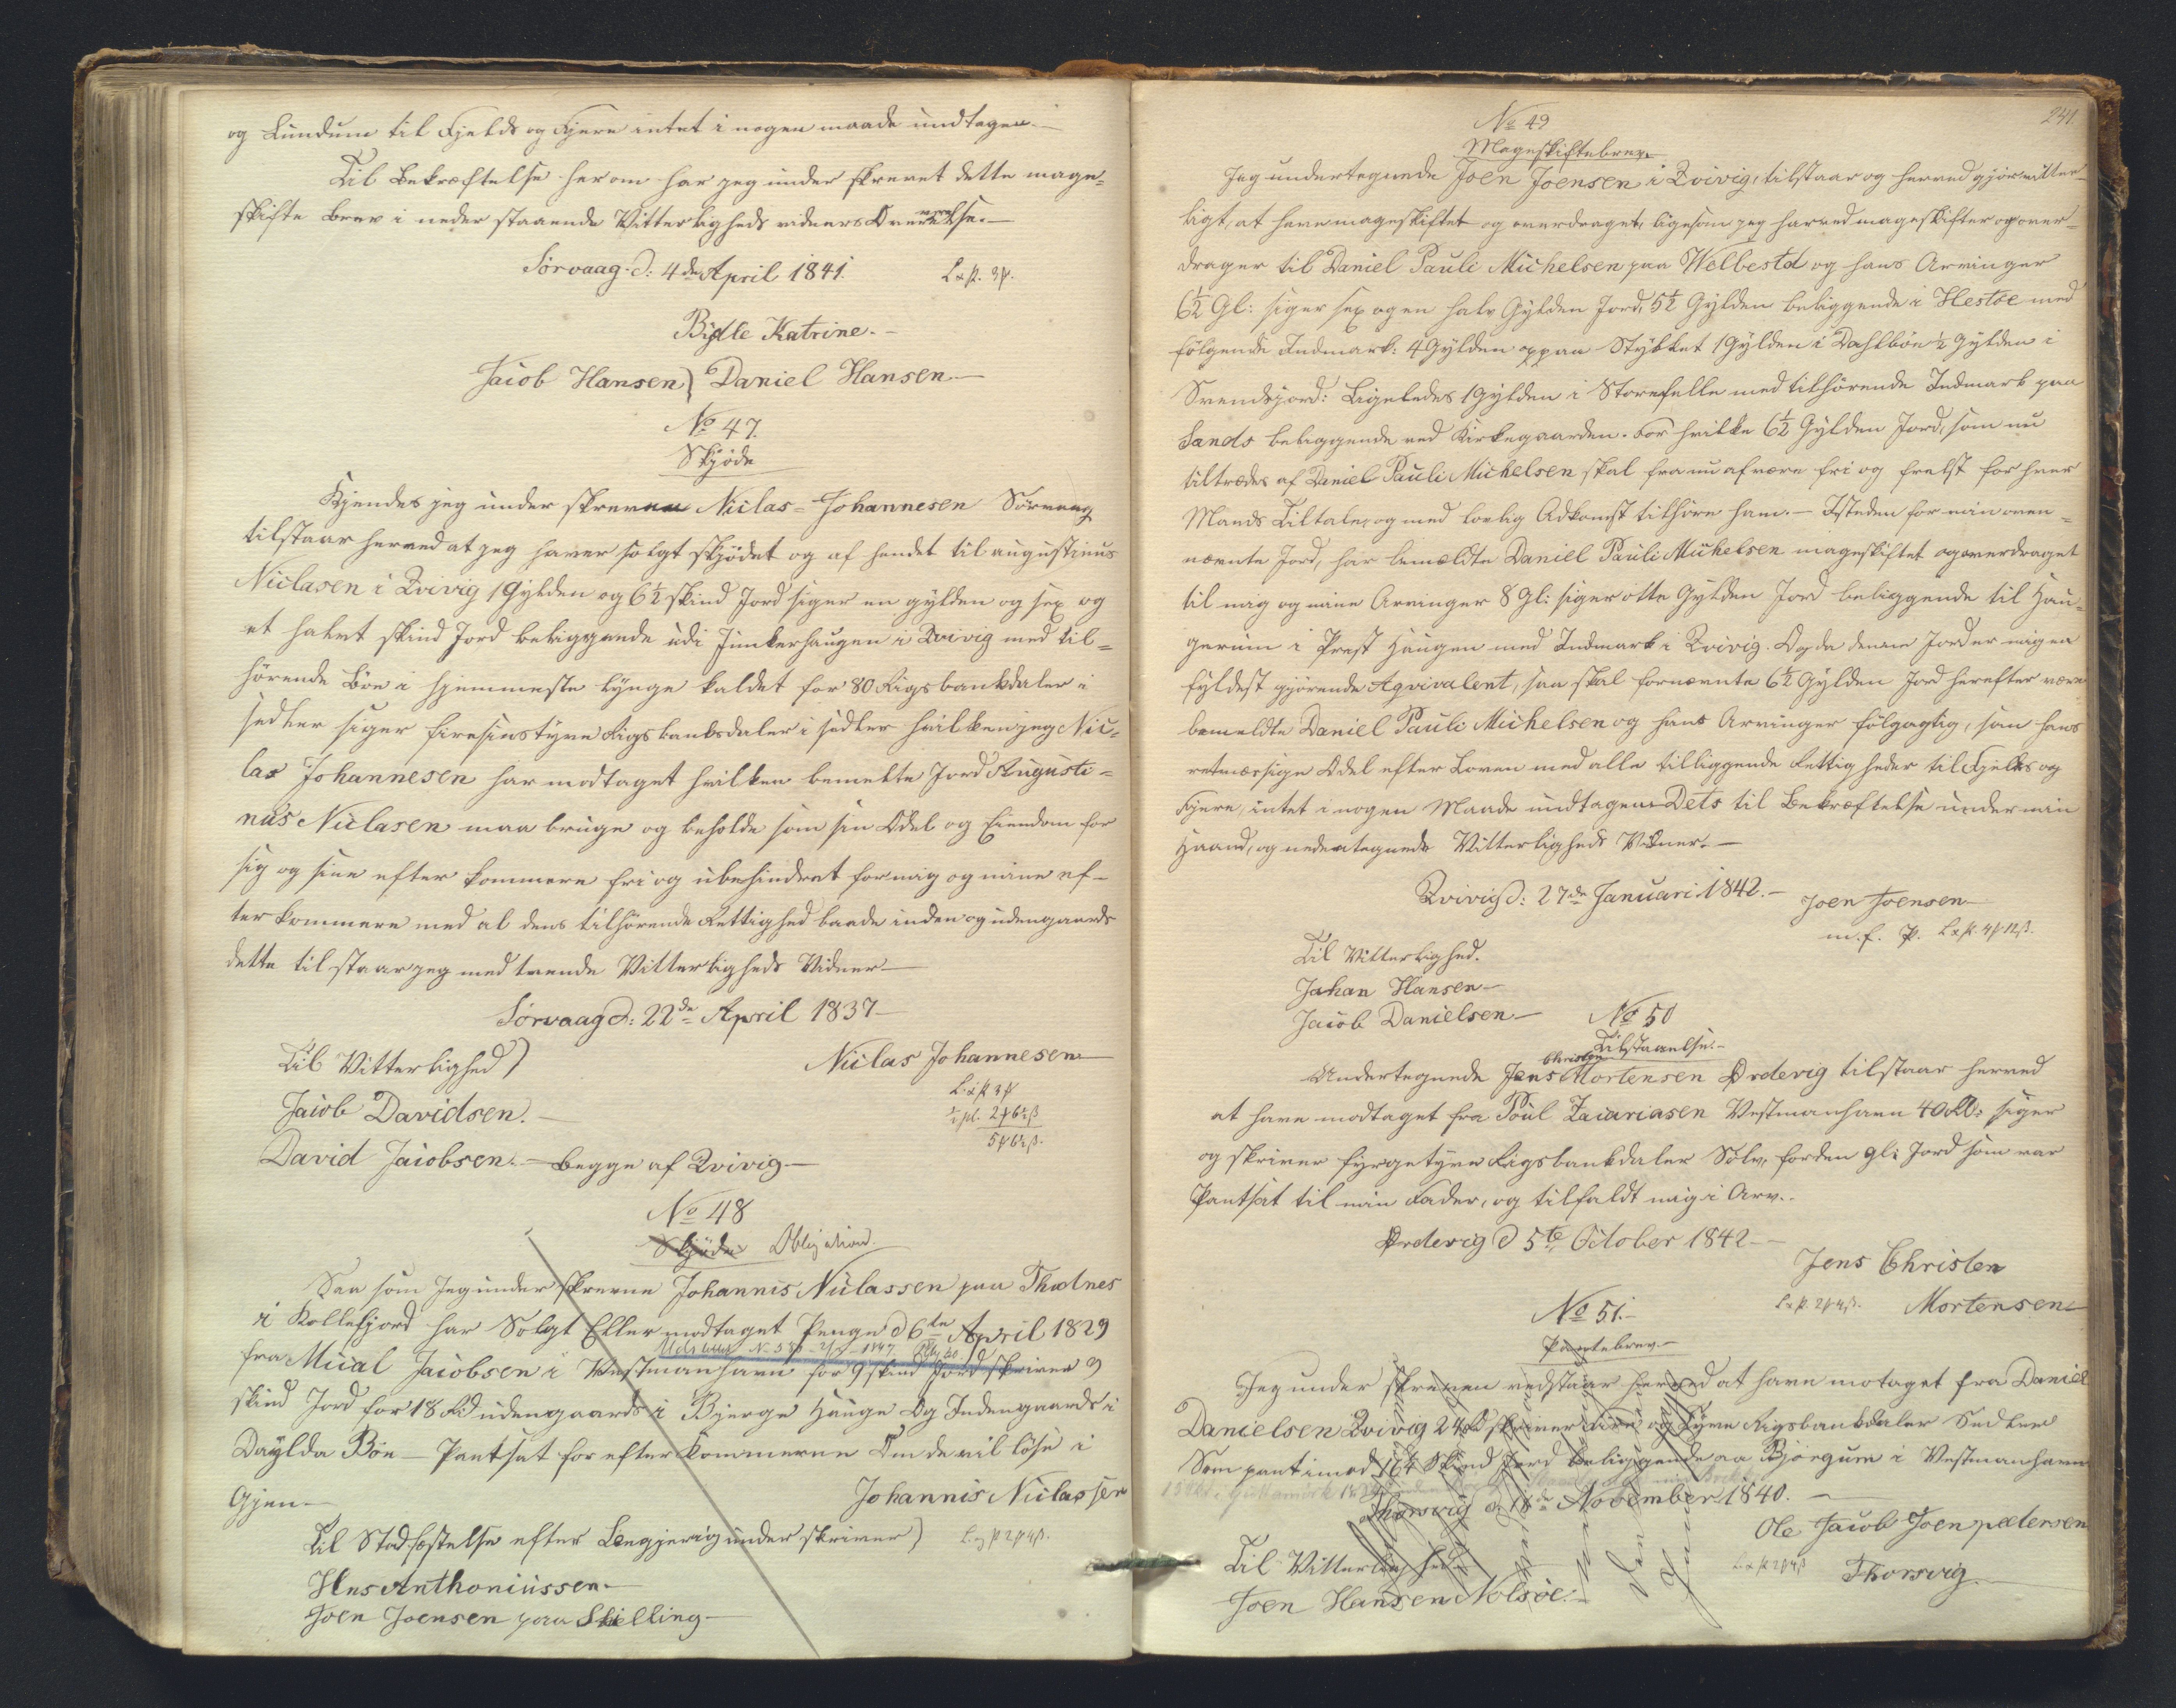 og Lundum til Fjelds og Fjere intet i nogen maade undtagen.—
Til Bekræftelse herom har jeg under skrevet dette mage=
skifte Brev i neder staaende Vitterligheds vidners Overværelse.—
Sörvaag d: 4de April 1841.
Bigle Katrine.—
Jacob Hansen} Daniel Hansen—
No 47.
Skjöde
Kjendes jeg under skreven Niclas=Johannesen Sörvaag
tilstaar herved at jeg haver solgt skjödet og af hendet til augustinus
Niclasen i Qvivig 1 Gylden og 6½ skind Jord siger en gylden og sex og
et halvt skind Jord beliggende udi Junkerhaugen i Qvivig med til=
hörende Böe i hjemmeste lynge kaldet for 80 Rigsbankdaler i
sedler siger firesinstyve Rigsbankdaler i sedler hvilken jeg Nic=
las Johannesen har modtaget hvilken bemelte Jord Augusti=
nus Niclasen maa bruge og beholde som sin Odel og Eiendom for
sig og sine efter kommere fri og ubehindret for mig og mine ef=
ter kommere med al dens tilhörende Rettighed baade inden og udengaards
dette til staar jeg med tvende Vitterligheds Vidner—
Sörvaag d: 22de April 1837—
Til Vitterlighed)
Niclas Johannesen—
Jacob Davidsen.—
David Jacobsen.— Begge af Qvivig—
No 48
Skjöde Obligation
Saa som Jeg under skrevne Johannis Niclassen paa Thodnes
i Kollefjord har Solgt Eller modtaget Penge d 6te April 1829
fra Mical Jacobsen i Vestmanhavn for 9 skind Jord skriver 9
skind Jord for 18 Rd udengaards i Bjerge Hauge Og Indengaards i
Däylda Böe — Pantsat for efter kommerne Om de vil löse i
Gjen—
Johannis Niclassen
Til Stadfæstelse efter Begjering under skriver)
Hns Anthoniussen—
Joen Joensen paa Skelling—
241.
No 49
Mageskiftebrev
Jeg undertegnede Joen Joensen i Qvivig, tilstaar og herved gjör vitter=
ligt, at have mageskiftet og overdraget, ligesom jeg herved mageskifter og over=
drager til Daniel Pauli Michelsen paa Welbestd og hans Arvinger
6½ Gl: siger sex og en halv Gylden Jord, 5½ Gylden beliggende i Hestöe med
fölgende Indmark: 4 Gylden oppaa Stykket 1 Gylden i Dahlböe ½ Gylden i
Svendsjord: Ligeledes 1 Gylden i Storefelle med tilhörende Indmark paa
Sands beliggende ved Kirkegaarden. For hvilke 6½ Gylden Jord, som nu
tiltrædes af Daniel Pauli Michelsen skal fra nu af være fri og frelst for hver
Mands Tiltale, og med lovlig Adkomst tilhöre ham.— Isteden for min oven=
nævnte Jord, har bemældte Daniel Pauli Michelsen mageskiftet og overdraget
til mig og mine Arvinger 8 Gl: siger otte Gylden Jord beliggende til Hau=
gerum i Prest Haugen med Indmark i Qvivig. Og da denne Jord er mig en
fyldest gjörende Aqvivalent, saa skal fornævnte 6½ Gylden Jord herefter være
bemeldte Daniel Pauli Michelsen og hans Arvinger fölgagtig, som hans
retmæssige Odel efter Loven med alle tilliggende Rettigheder til Fjelds og
Fjere, intet i nogen Maade undtagen. Dets til Bekræftelse under min
Haand, og nedentegnede Vitterligheds Vidner.—
Qvivig d: 27de Januari 1842.—
Joen Joensen—
m. f. P.
Til Vitterlighed.
Johan Hansen—
Jacob Danielsen—
No 50
Tilstaaelse.—
Undertegnede Jens Christen Mortensen Ördevig tilstaar herved
at have modtaget fra Poul Zacariasen Vestmanhavn 40 Rd: siger
og skriver fyrgetyve Rigsbankdaler Sölv, for den gl: Jord som var
Pantsat til min Fader, og tilfaldt mig i Arv.
Ördevig d 5te October 1842—
Jens Christen
Mortensen—
No 51.—
Pantebrev—
Jeg under skreven vedstaar herved at have motaget fra Daniel
Danielsen Qvivig 24 Rd skriver fire og Tyve Rigsbankdaler Sedler
Som pant imod 16¼ Skind Jord beliggende aa Björgum i Vestmanhavn
Thorsvig d 18de November 1840.—
Ole Jacob Joenpetersen
Thorsvig
Til Vitterlighed
Joen Hansen Nolsöe.—